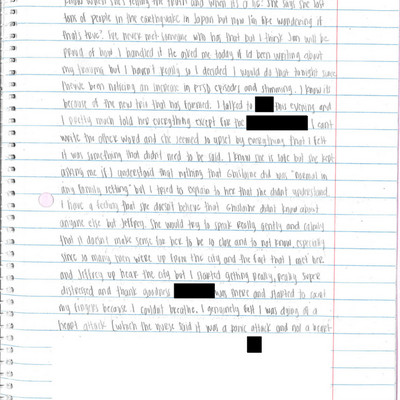 know when she's telling the truth and when its a lie. She says she lost
tons of people in the earthquake in Japan but now I'm like wondering if
thats true". I've never met someone who has that but I think Jon will be
proud of how I handled it. He asked me today if I'd been writing about
my trauma but I haven't really so I decided I would do that tonight since
I've been noticing an increase in PTSD episodes and stimming. I know its
because of the new trio that has formed. I talked to this evening and
I pretty much told her everything except for the I cant
write the other word and she seemed so upset by everything that I felt
it was something that didnt need to be said. I know she is late but she kept
asking me if I understood that nothing that Ghislaine did was "normal in
any family setting" but I tried to explain to her that she didnt understand
I have a feeling that she doesnt believe that Ghislaine didnt know about
anyone else but Jeffrey. She would try to speak really gently and calmly
that it doesnt make sense for her to be so close and to not know, especially
since so many men were up from the city and the fact that I met her
and Jeffrey up near the city but I started getting really, really
distressed and thank goodness was there and started to count
my fingers because I couldnt breathe. I genuinely felt I was dying of a
heart attack (which the nurse said it was a panic attack and not a heart